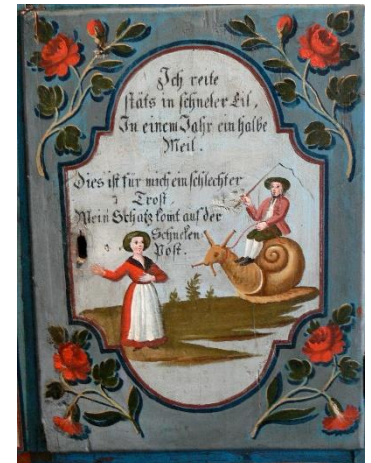 Ich reite
stäts in schneler Eil,
In einem Jahr ein halbe
Meil.
Dies ist für mich ein schlechter
Trost
Mein Schatz komt auf der
Schneken
Post.